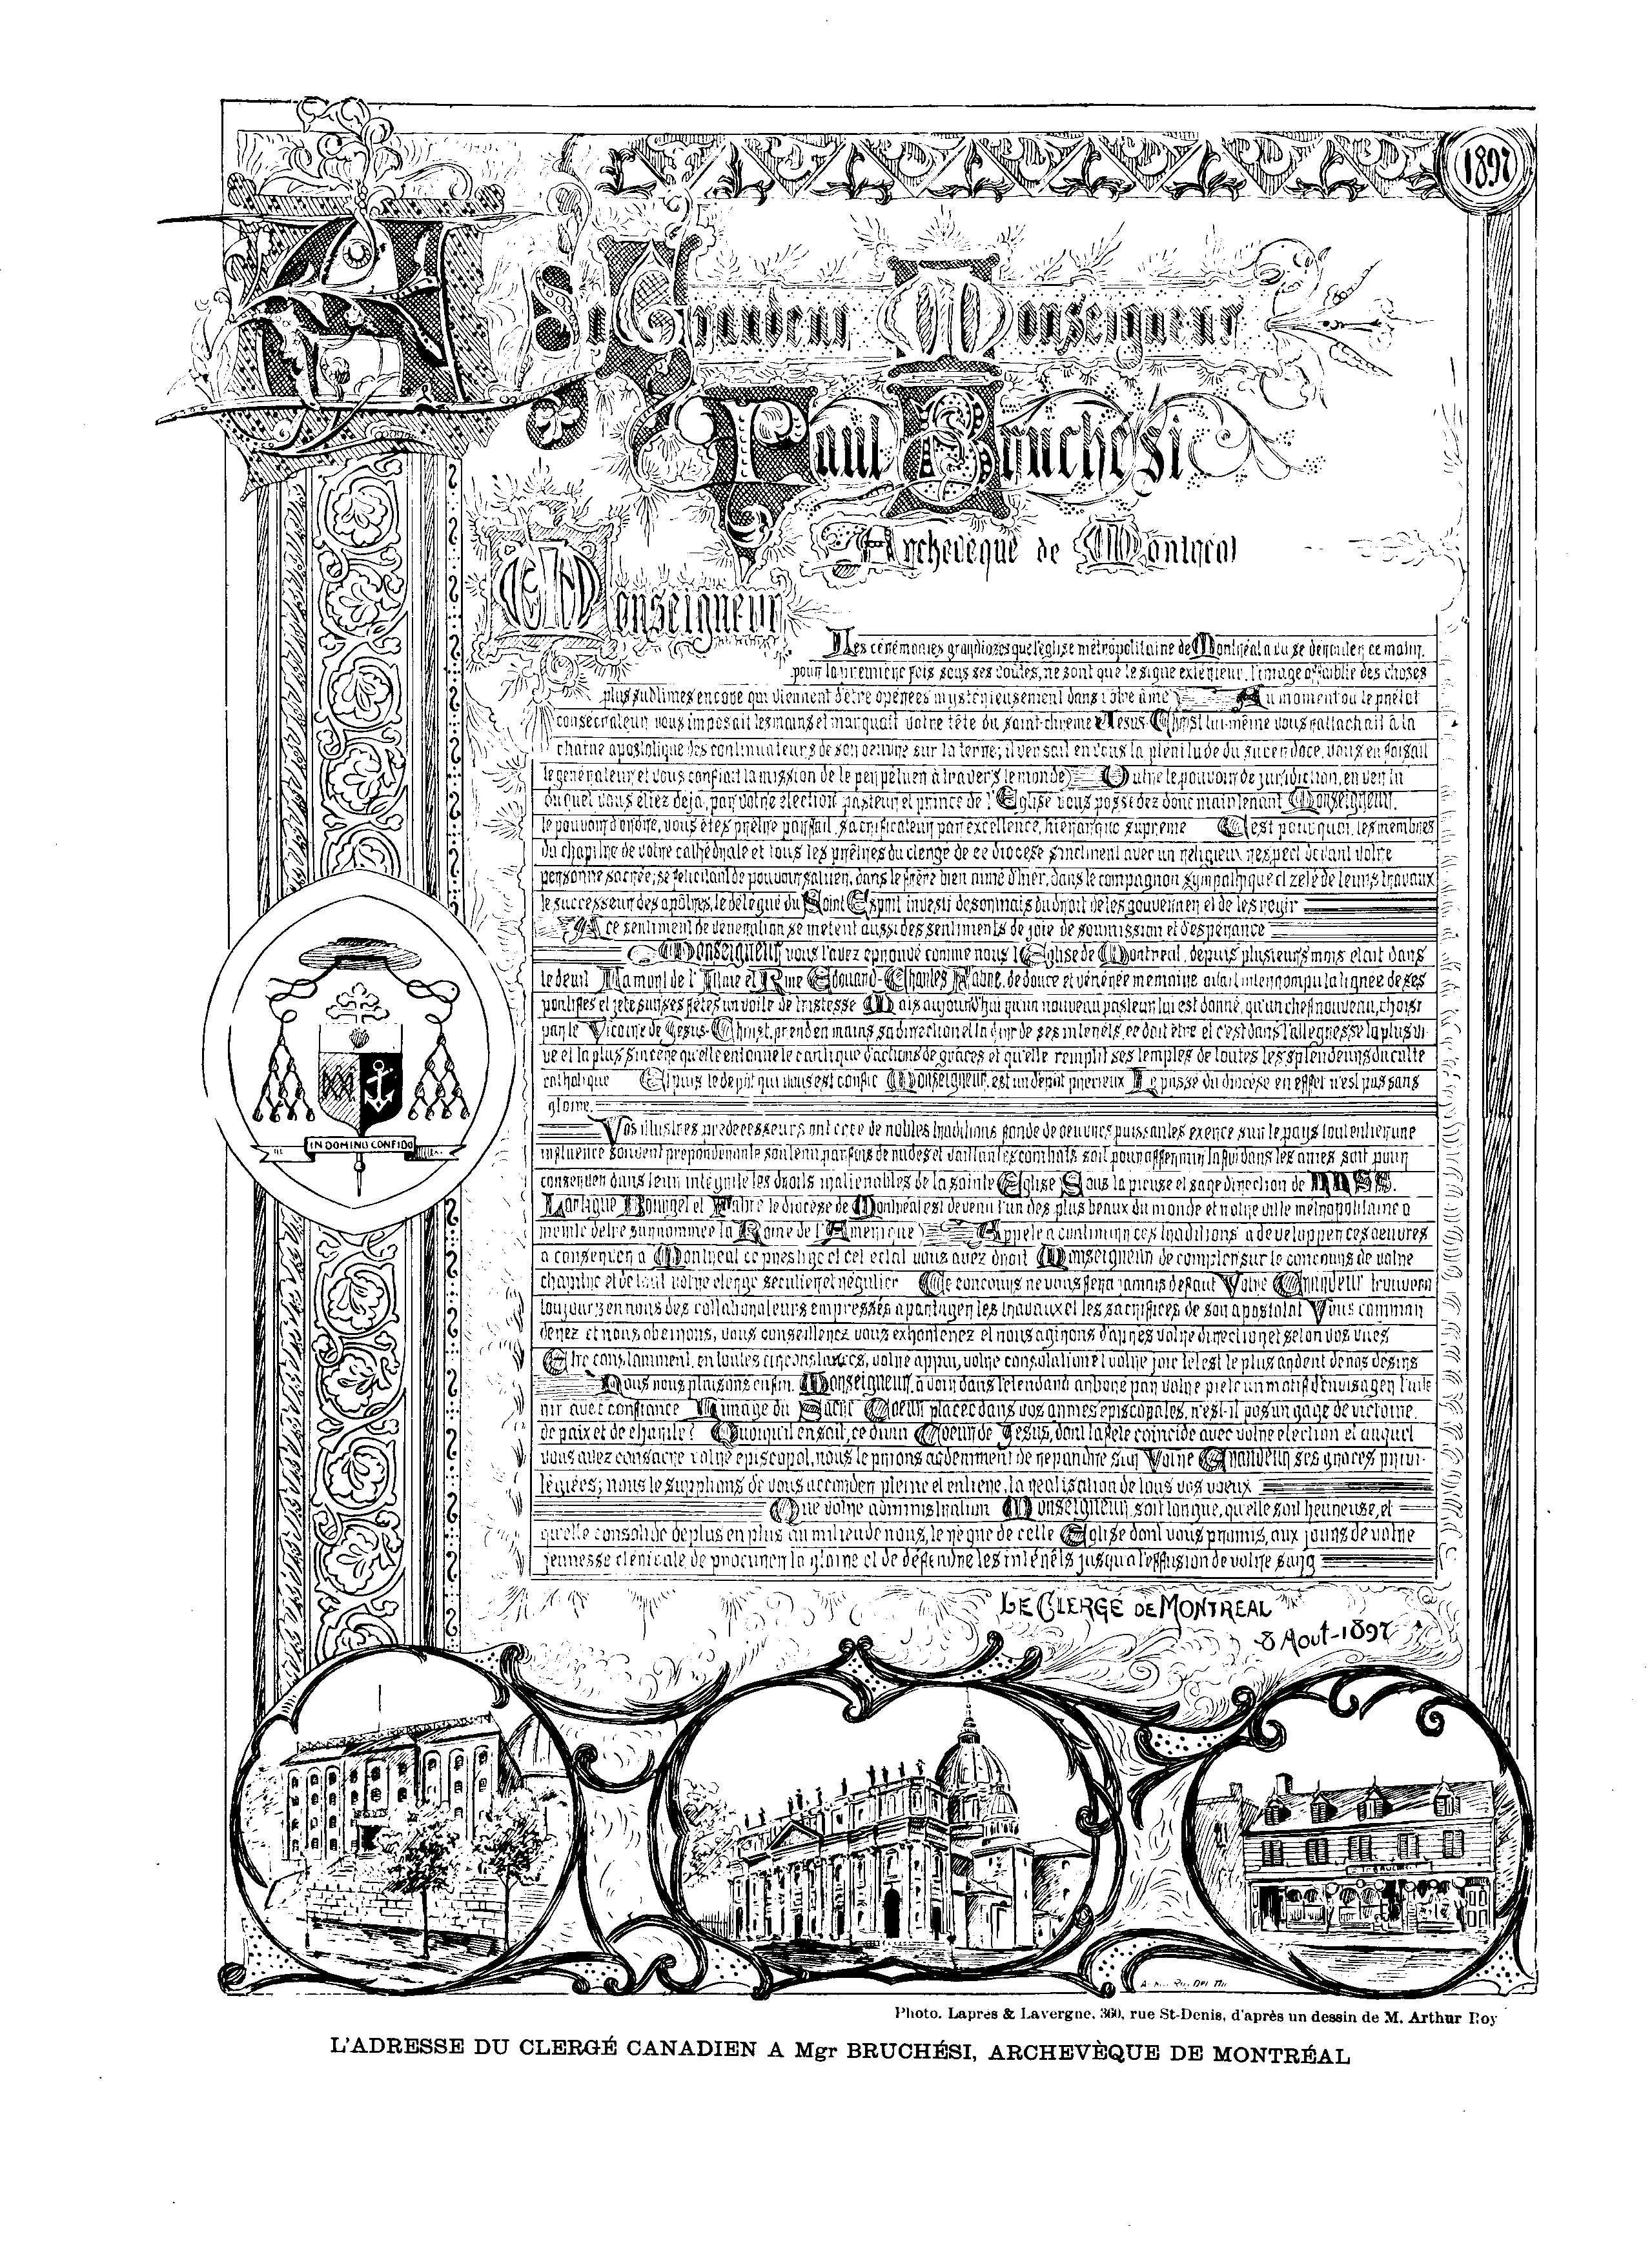 1897
A Sa Grandeur Monseigneur
Paul Bruchési
Archevêque de Montréal
Monseigneur
Les cérémonies grandioses que l'église métropolitaine de Montréal a vu se dérouler ce matin,
pour la première fois sous ses voûtes, ne sont que le signe extérieur, l'image affaiblie des choses
plus sublimes encore qui viennent d'être opérées mystérieusement dans votre âme Au moment où le prélat
consécrateur vous imposait les mains et marquait votre tête du saint-chrème Jésus-Christ lui-même vous rattachait à la
chaine apostolique des continuateurs de son oeuvre sur la terre; il versait en vous la plénitude du sacerdoce, vous en faisait
le générateur et vous confiait la mission de le perpétuer à travers le monde Outre le pouvoir de juridiction, en vertu
duquel vous étiez déjà, par votre élection pasteur et prince de l'Eglise vous possédez donc maintenant Monseigneur,
le pouvoir d'ordre, vous êtes prêtre parfait, sacrificateur par excellence, hiérarque suprême C'est pourquoi, les membres
du chapitre de votre cathédrale et tous les prêtres du clergé de ce diocèse s'inclinent avec un religieux respect devant votre
personne sacrée; se félicitant de pouvoir saluer, dans le frère bien aimé d'hier, dans le compagnon sympathique et zélé de leurs travaux
le successeur des apôtres, le délégué du Saint Esprit investi désormais du droit de les gouverner et de les régir
A ce sentiment de vénération se mêlent aussi des sentiments de joie de soumission et d'espérance
Monseigneur vous l'avez éprouvé comme nous l'Eglise de Montréal, depuis plusieurs mois était dans
le deuil La mort de l'Illme et Rme Edouard-Charles Fabre, de douce et vénérée mémoire avait interrompu la lignée de ses
pontifes et jeté sur ses fêtes un voile de tristesse Mais aujourd'hui qu'un nouveau pasteur lui est donné, qu'un chef nouveau, choisi
par le Vicaire de Jésus-Christ, prend en mains sa direction et la garde de ses intérêts, ce doit être et c'est dans l'allégresse la plus vi-
ve et la plus sincère qu'elle entonne le cantique d'actions de grâces et qu'elle remplit ses temples de toutes les splendeurs du culte
catholique Et puis le dépôt qui vous est confié Monseigneur, est un dépôt précieux Le passé du diocèse en effet n'est pas sans
gloire
Vos illustres prédécesseurs ont créé de nobles traditions fondé de oeuvres puissantes exercé sur le pays tout entier une
influence souvent prépondérante soutenu parfois de rudes et vaillants combats soit pour affermir la foi dans les âmes soit pour
conserver dans leur intégrité les droits inaliénables de la sainte Eglise Sous la pieuse et sage direction de NNSS.
Lartigue Bourget et Fabre le diocèse de Montréal est devenu l'un des plus beaux du monde et notre ville métropolitaine a
mérité d'être surnommée la Rome de l'Amérique Appelé a continuer ces traditions a développer ces oeuvres
a conserver a Montréal ce prestige et cet éclat vous avez droit Monseigneur de compter sur le concours de votre
chapitre et de tout votre clergé séculier et régulier Ce concours ne vous fera jamais défaut Votre Grandeur trouvera
toujours en nous des collaborateurs empressés a partager les travaux et les sacrifices de son apostolat Vous comman
derez et nous obéirons, vous conseillerez vous exhorterez et nous agirons d'après votre direction et selon vos vues
Etre constamment, en toutes circonstances, votre appui, votre consolation et votre joie tel est le plus ardent de nos désirs
Nous nous plaisons enfin, Monseigneur, a voir dans l'étendard arboré par votre piété un motif d'envisager l'ave
nir avec confiance L'image du Sacré Coeur placée dans vos armes épiscopales, n'est-il pas un gage de victoire,
de paix et de charité? Quoiqu'il en soit, ce divin Coeur de Jésus, dont la fête coïncide avec votre élection et auquel
vous avez consacré votre épiscopat, nous le prions ardemment de répandre sur Votre Grandeur ses grâces privi-
légiées; nous le supplions de vous accorder pleine et entière, la réalisation de tous vos voeux
Que votre administration Monseigneur, soit longue, qu'elle soit heureuse, et
qu'elle consolide de plus en plus au milieu de nous, le règne de cette Eglise dont vous promis, aux jours de votre
jeunesse cléricale de procurer la gloire et de défendre les intérêts jusqu'a l'effusion de votre sang
IN DOMINO CONFIDO
LE CLERGÉ DE MONTREAL
8 Aout-1897
Photo. Laprés & Lavergne, 360, rue St-Denis, d'après un dessin de M. Arthur Roy
L'ADRESSE DU CLERGÉ CANADIEN A Mgr BRUCHÉSI, ARCHEVÈQUE DE MONTRÉAL